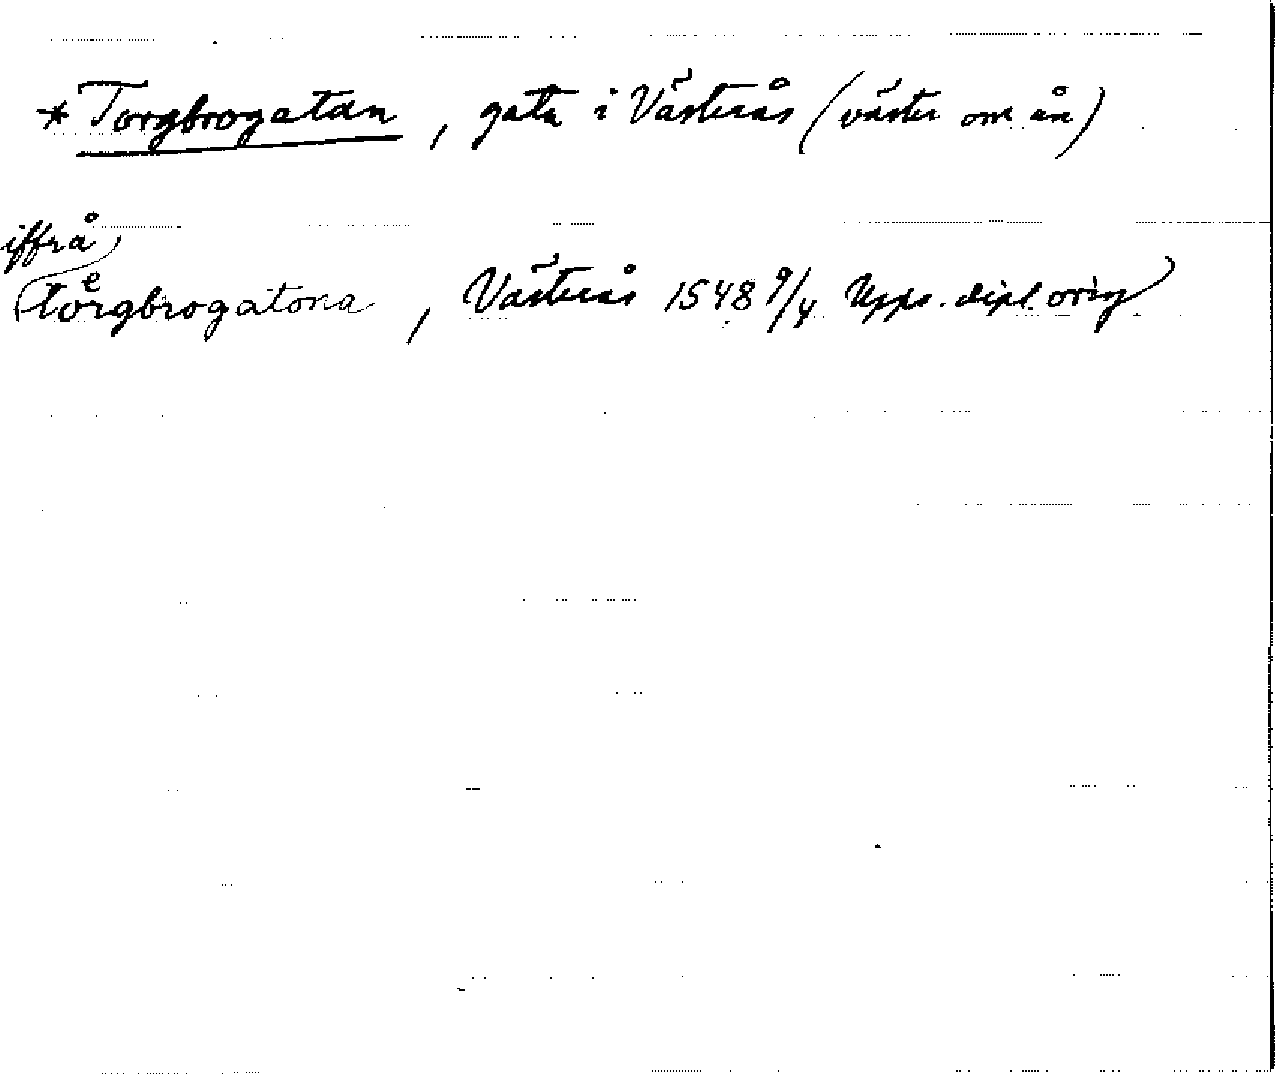 * Torgbrogatan, gata i Västerås (väster om ån)
iffrå
toͤrgbrogatona, Västerås 1548 9/4 Upps. dipl. orig